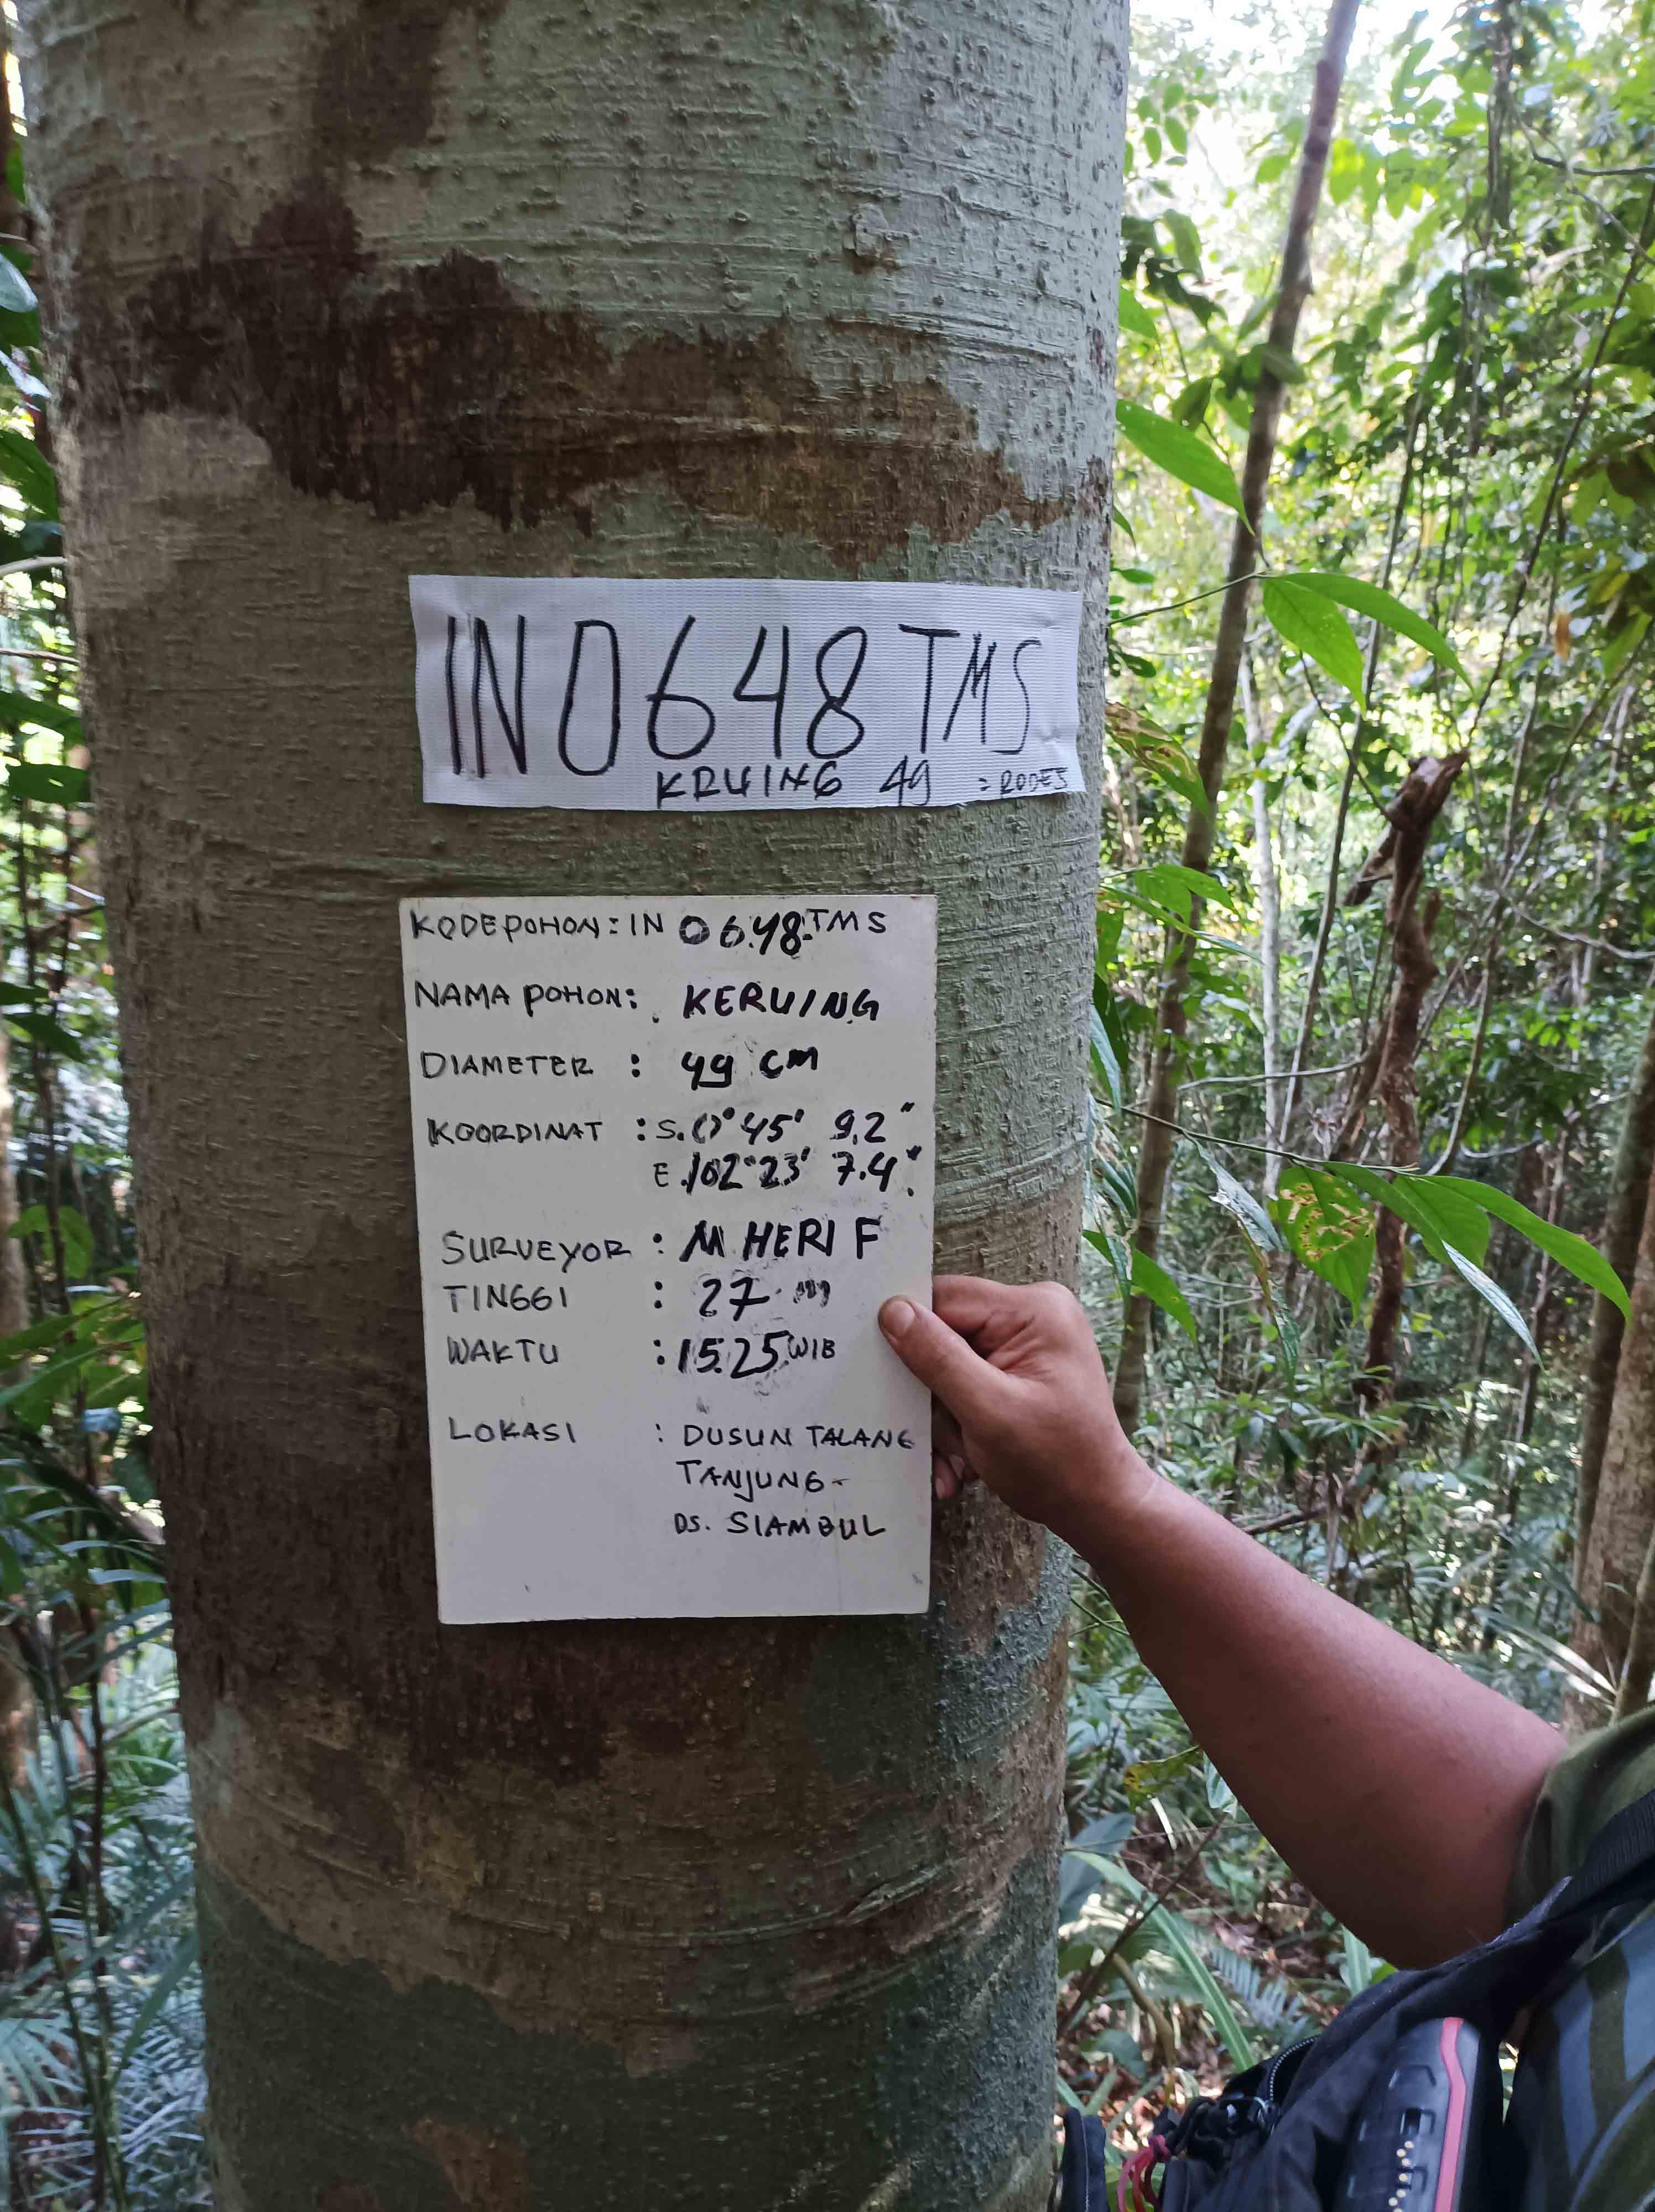 IN 0648 TMS
KRUING 49 = RODES
KODE POHON : IN 0648 TMS
NAMA POHON : KERUING
DIAMETER : 49 CM
KOORDINAT : S. 0° 45' 9.2"
E. 102° 23' 7.4"
SURVEYOR : M HERI F
TINGGI : 27 m
WAKTU : 15.25 WIB
LOKASI : DUSUN TALANG
TANJUNG -
DS. SIAMBUL